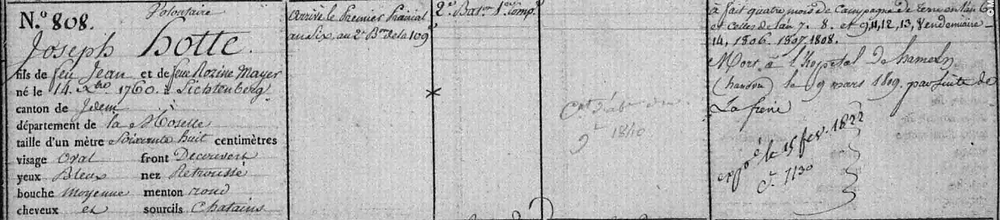 N.° 808. Volontaire
Joseph Hotte.
fils de feu Jean et de feue Rozine Mayer
né le 14. Xbre 1760. à Lichtenberg
canton de Idem à
département de la Moselle
taille d'un mètre Soixante huit centimètres
visage Oval front Découvert
yeux Bleux nez Retroussé
bouche Moyenne menton rond
cheveux et sourcils Chatains
Arrivé le Premier Prairial
au six, au 2e Bon de la 109
2e. Baton 1ere Comp.
*
1840
à fait quatre mois de Campagne de terre en l'an 6.
et celles de l'an 7. 8. et 9, 11, 12, 13, Vendemiaire
14, 1806. 1807. 1808.
Mort à l'hopital de hameln
(hanovre) le 9 mars 1809. par suite de
La fievre
le 15 fev. 1822
1130